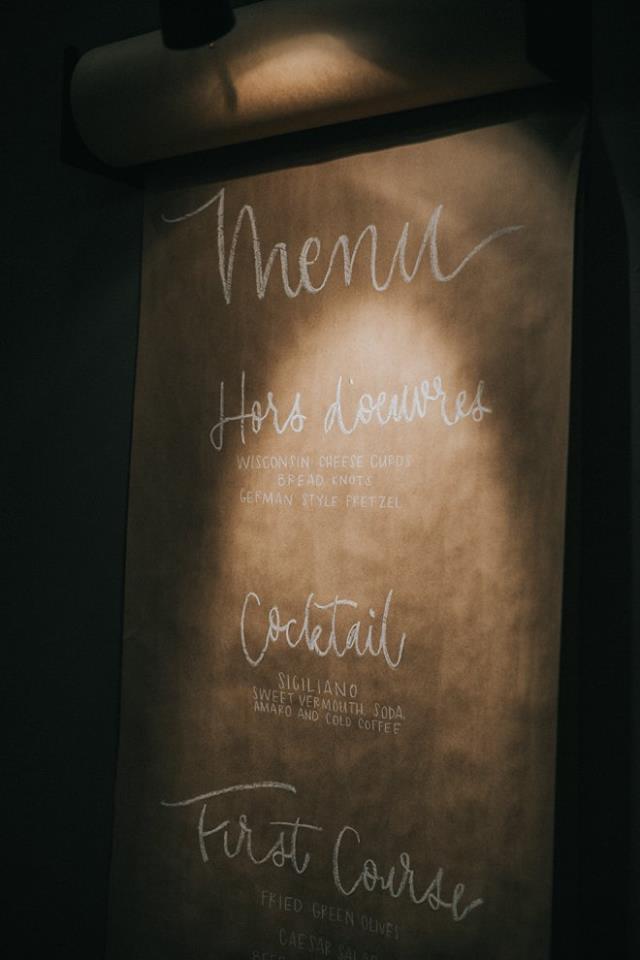 Menu
Hors d'oeuvres
WISCONSIN CHEESE CURDS
BREAD KNOTS
GERMAN STYLE PRETZEL
Cocktail
SICILIANO
SWEET VERMOUTH, SODA,
AMARO AND COLD COFFEE
First Course
FRIED GREEN OLIVES
CAESAR